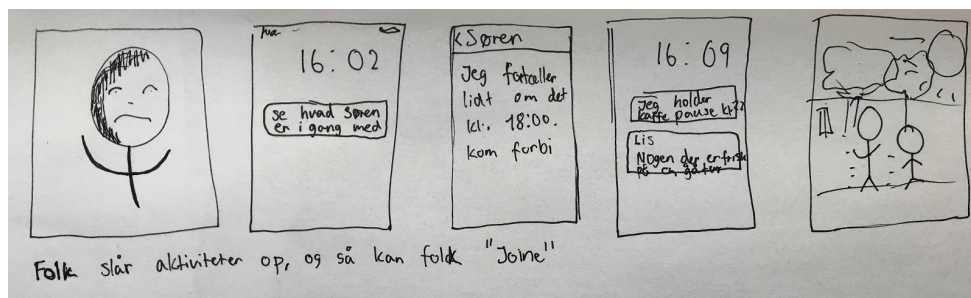 16:02
se hvad Søren
er i gang med
< Søren
Jeg fortæller
lidt om det
kl. 18:00.
kom forbi
16:09
Jeg holder
kaffe pause kl.
Lis
Nogen der er frisk
på en gåtur
Folk slår aktiviteter op, og så kan folk "Joine"